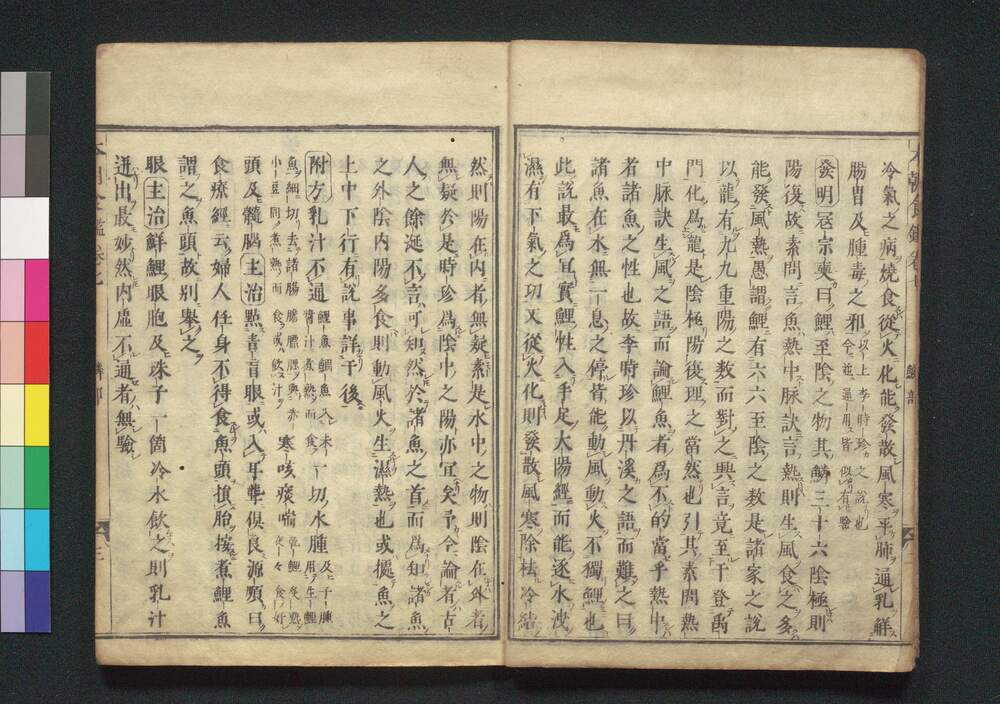 冷氣之病燒食從火化能發散風寒平肺通乳鮮
腸胃及腫毒之邪以上李時珍之說也今並通用皆似有驗
發明冦宗奭曰鯉至陰之物其鱗三十六陰極則
陽復故素問言魚熱中脉訣言熱則生風食之多
能發風熱愚謂鯉有六六至陰之數是諸家之說
以龍有九九重陽之数而對之與言竟至于登禹
門化爲龍是陰極陽復理之當然也引其素問熱
中脉訣生風之語而論鯉魚者爲不的當乎熱中
者諸魚之性也故李時珍以丹溪之語而難之曰
諸魚在水無一息之停皆能動風動火不獨鯉也
此說最爲冝實鯉性入手足太陽經而能逐水洩
濕有下氣之功又從火化則發散風寒除祛冷結
然則陽在内者無疑素是水中之物則陰在外者
無疑於是時珍爲陰中之陽亦冝矣予今論者古
人之餘涎不言可知然於諸魚之首而爲知諸魚
之外陰内陽多食則動風火生濕熱也或據魚之
上中下行有說事詳于後
附方乳汁不通鯉魚鯛魚入未醬汁煮熟而食一切水腫及子腫用生鯉
魚細切去諸腸膽與赤小豆同煮熟而食或飲汁寒咳痰喘
頭及髓腦主治㸃青盲眼或入耳聾俱良源順曰
食療經云婦人任身不得食魚頭損胎按煮鯉魚
謂之魚頭故別舉之
眼主治鮮鯉眼胞及珠子一箇冷水飲之則乳汁
迸出最妙然内虚不通者無驗